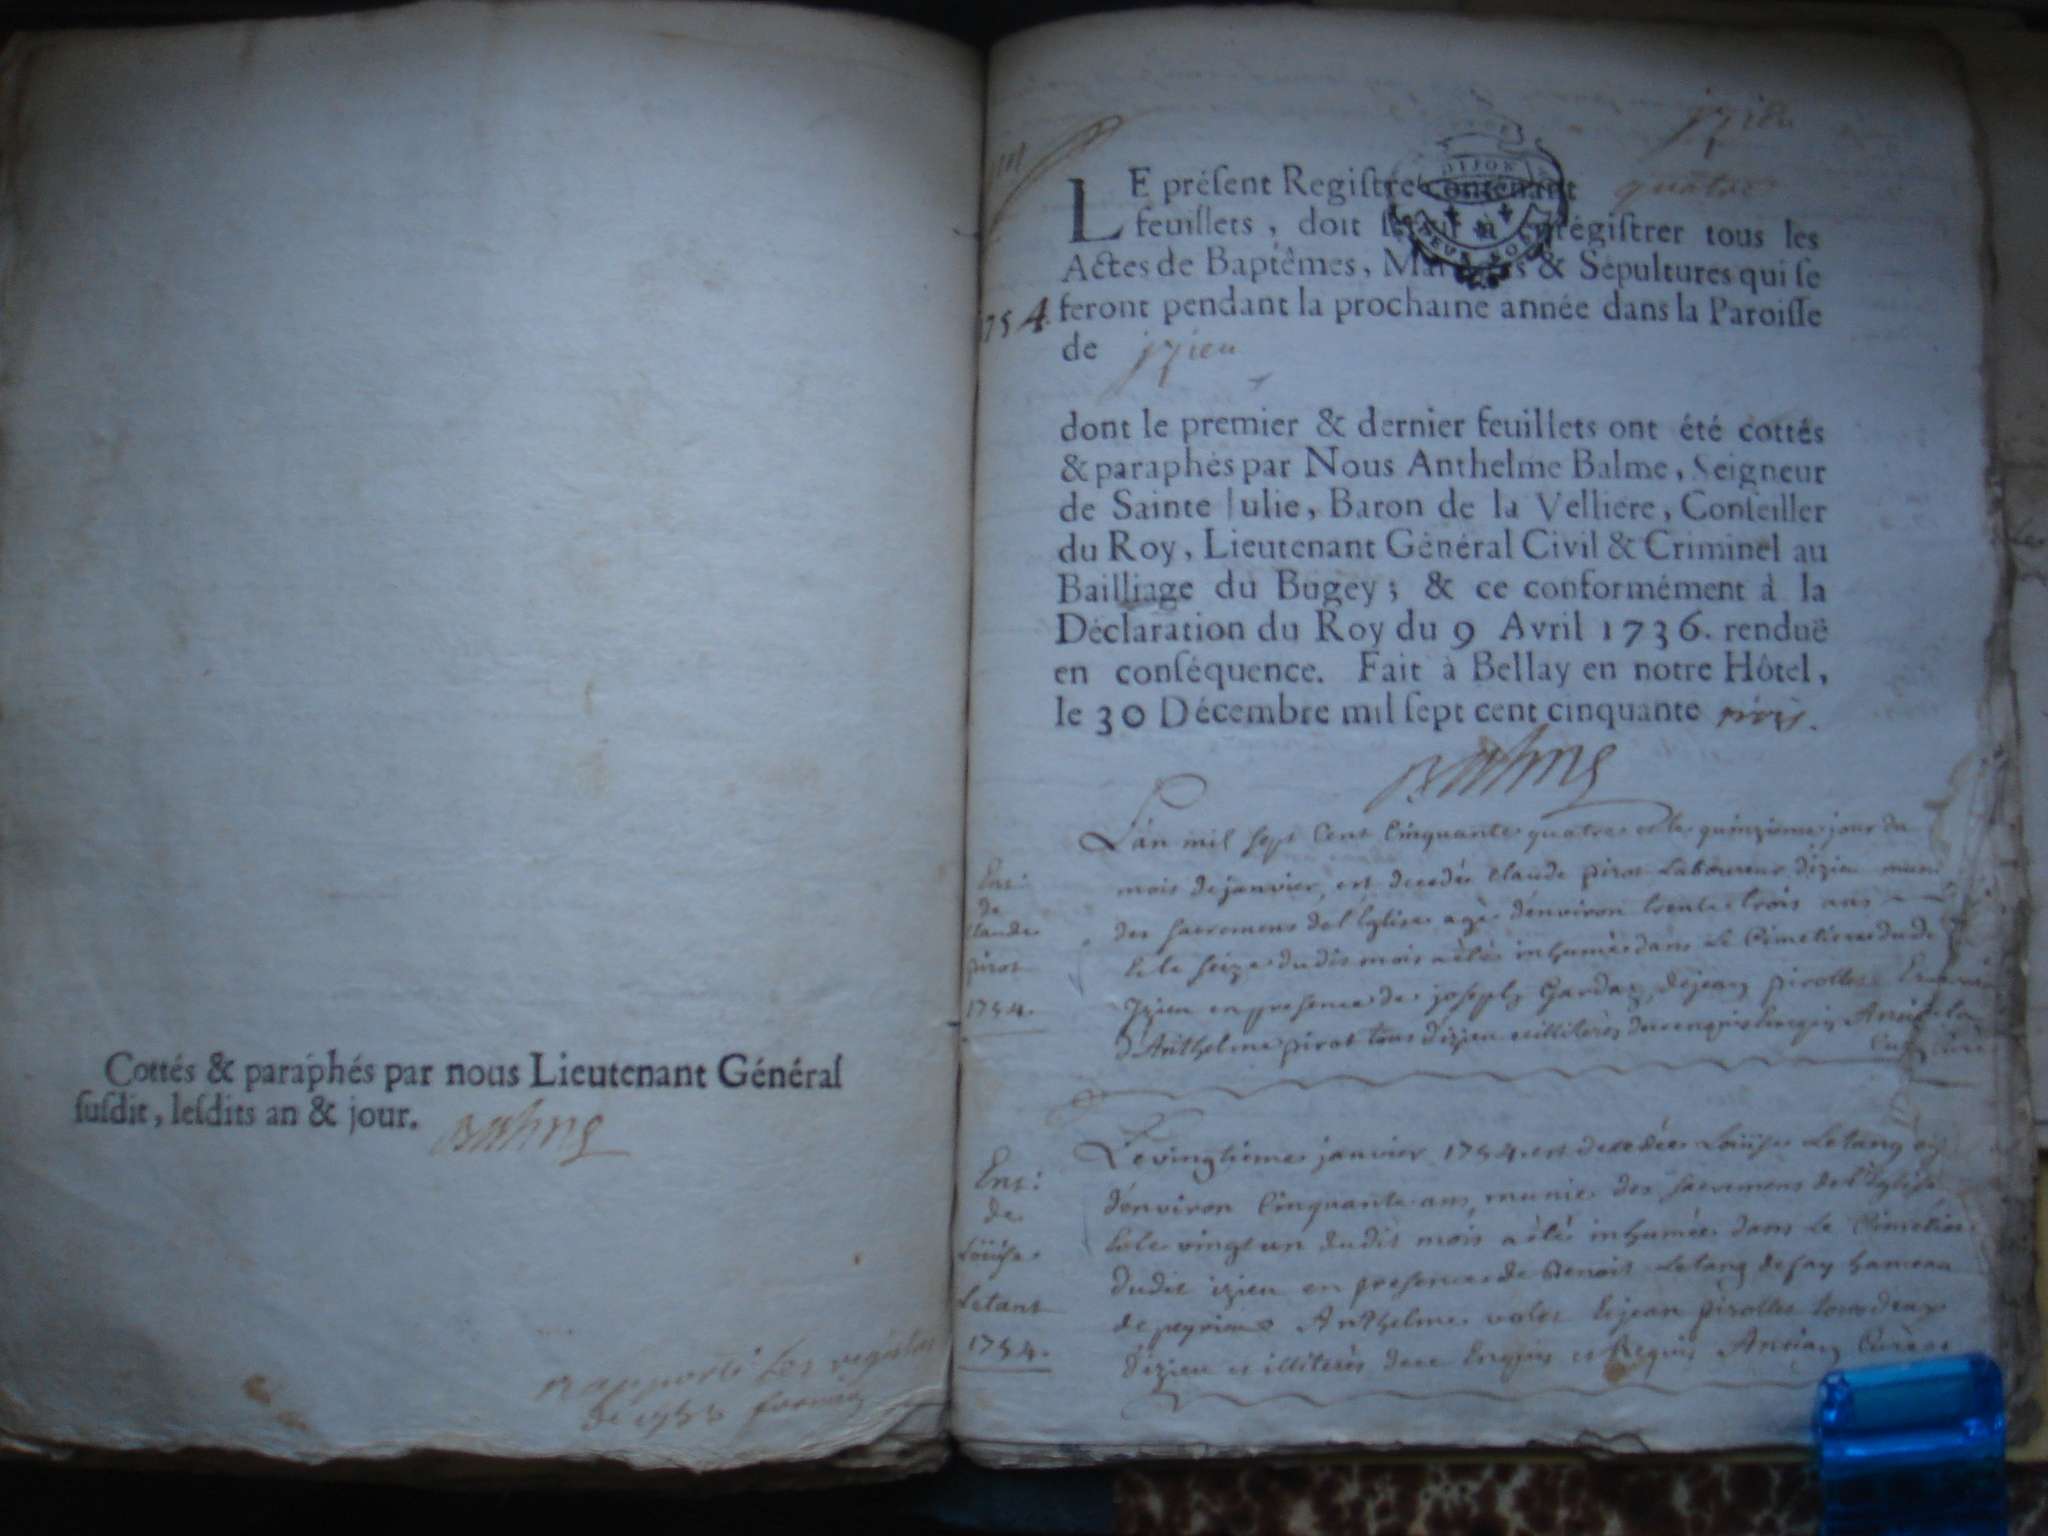 Cottés & paraphés par nous Lieutenant Général
ſuſdit, leſdits an & jour. Balme
rapporté les registres
de 1753
izieu
DIJON
LE préſent Regiſtre contenant quatre
feuillets, doit ſervir à enrégiſtrer tous les
Actes de Baptêmes, Mariages & Sépultures qui ſe
1754. feront pendant la prochaine année dans la Paroiſſe
de izieu
dont le premier & dernier feuillets ont été cottés
& paraphés par Nous Anthelme Balme, Seigneur
de Sainte Julie, Baron de la Velliere, Conſeiller
du Roy, Lieutenant Général Civil & Criminel au
Bailliage du Bugey; & ce conformément à la
Déclaration du Roy du 9 Avril 1736. renduë
en conſéquence. Fait à Bellay en notre Hôtel,
le 30 Décembre mil ſept cent cinquante trois.
Balme
Ent:
de
Claude
pirot
1754.
L'an mil sept Cent Cinquante quatre et le quinzieme jour du
mois de janvier, est decedé Claude pirot Laboureur d'izieu muni
des sacremens de l'Eglise agé d'environ trente trois ans
Et le seize dudit mois a été inhumé dans Le Cimetiere dudit
Izieu en presence de joseph Gardaz, de jean pirollet Et
d'Anthelme pirot tous d'izieu et illiterés de ce enquis
Curé
Ent:
de
Loüise
Letant
1754.
Le vingtieme janvier 1754 est decedée Loüise Letang agée
d'environ Cinquante ans, munie des sacremens de l'Eglise
Et le vingt un dudit mois a été inhumée dans Le Cimetiere
dudit izieu en presence de Benoit Letang de fay hameau
de peyrieu Anthelme volet Et jean pirollet tous deux
d'izieu et illiterés de ce Enquis et Requis Curé